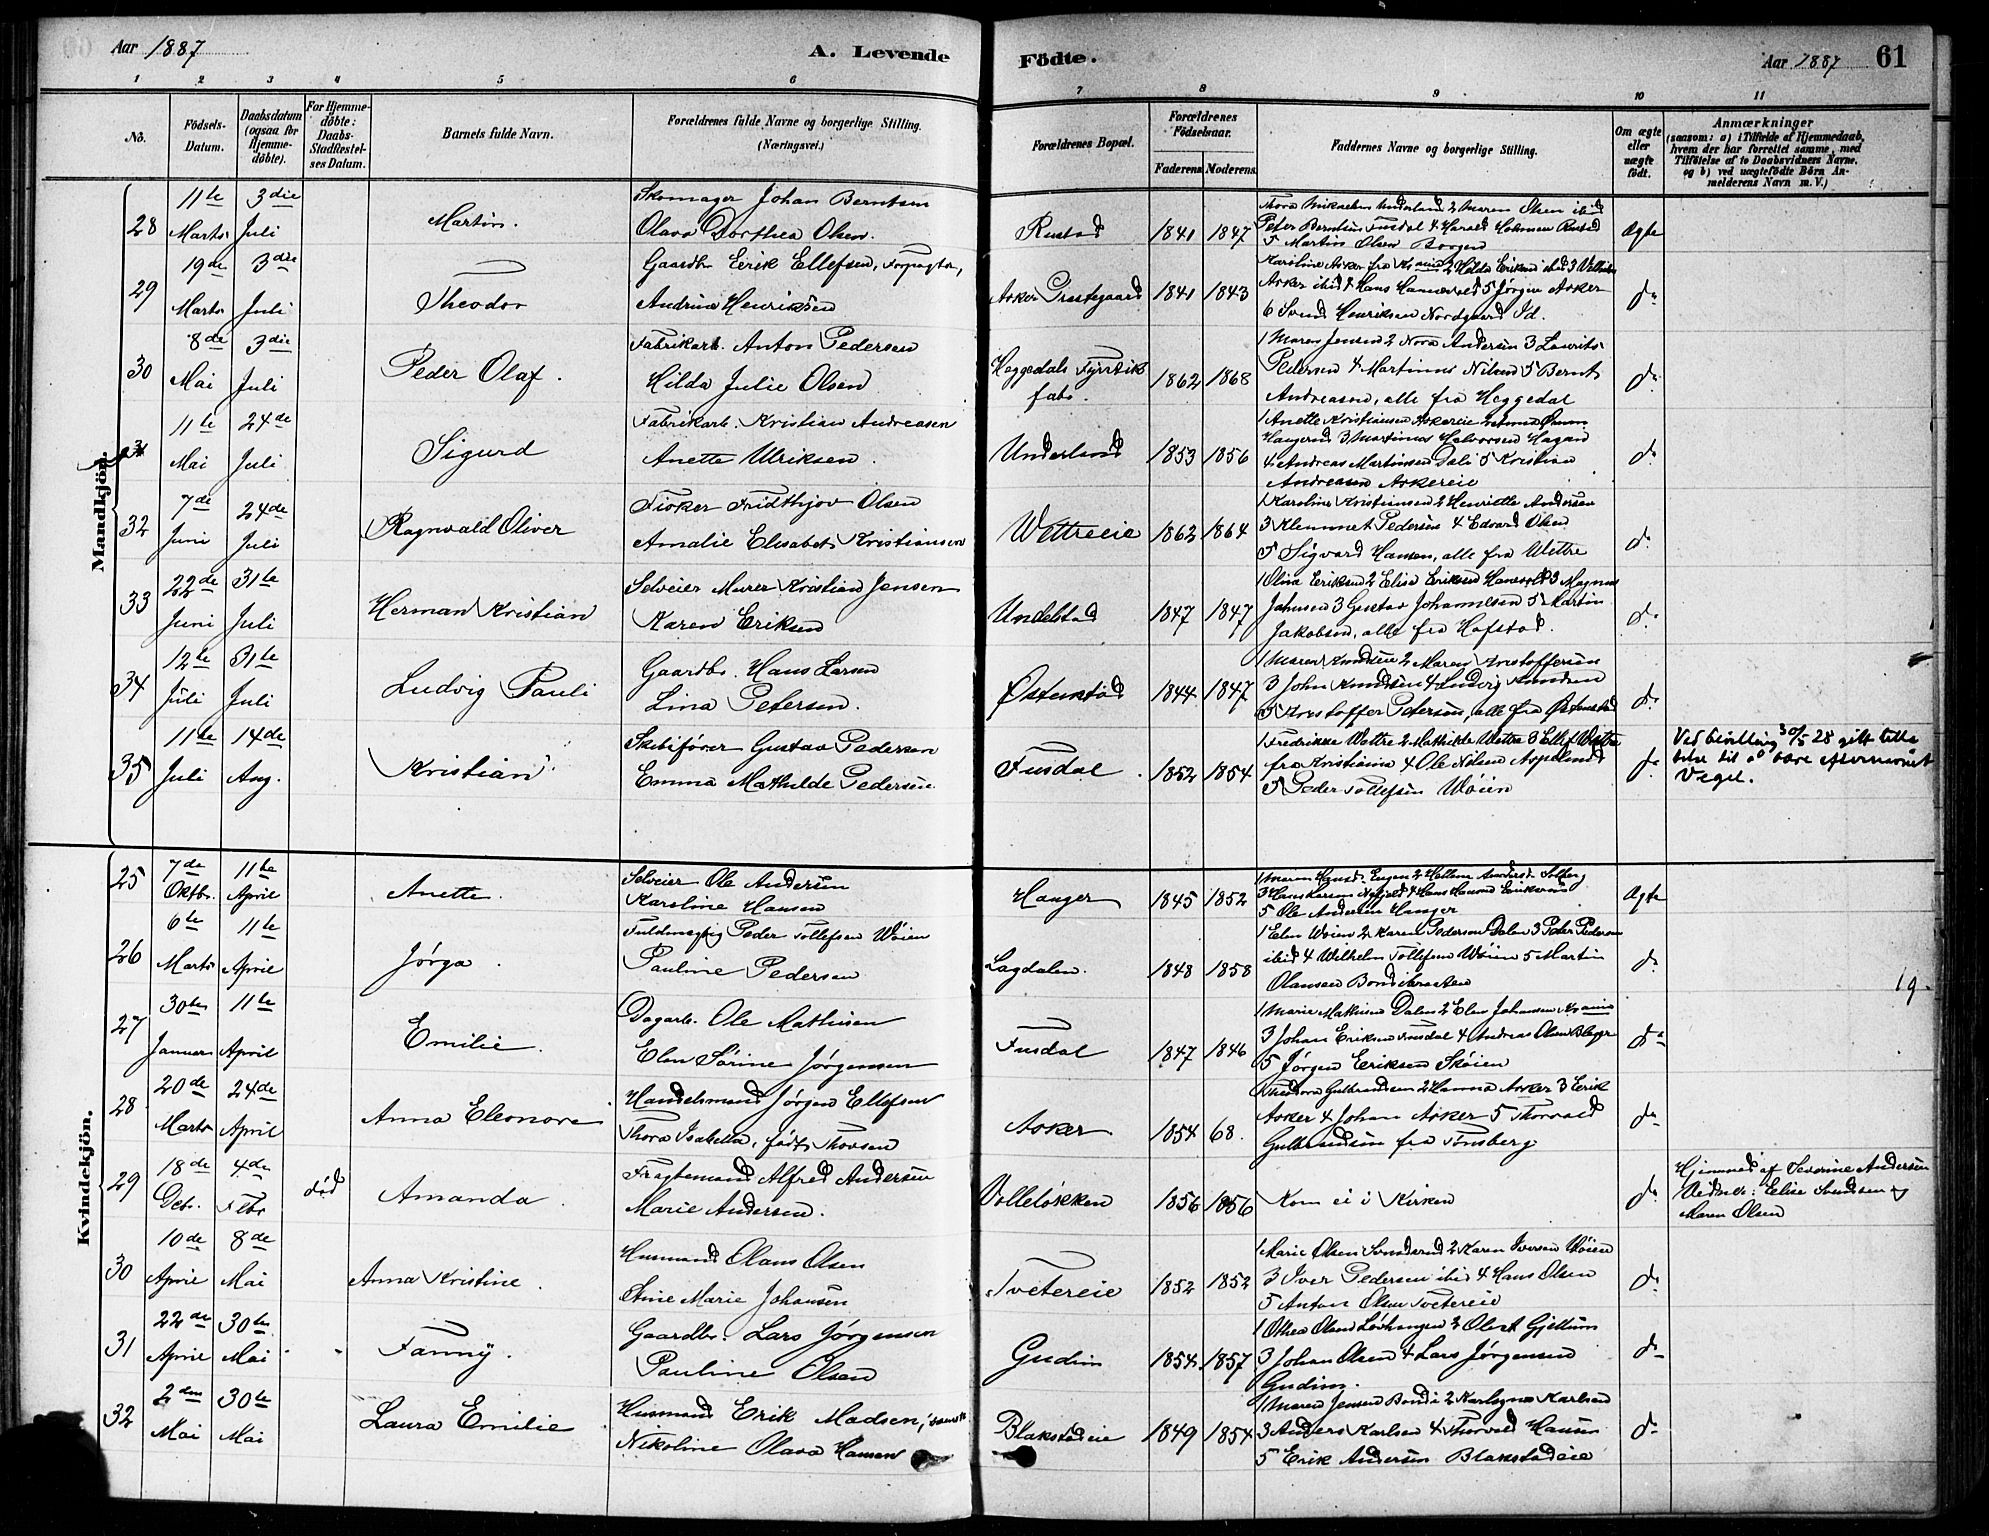 Aar 1887
A. Levende
Födte.
Aar 1887
61
1 2 3 4 5 6 7 8 9 10 11
No.
Födsels-Datum.
Daabsdatum (ogsaa for Hjemme-döbte).
For Hjemme-döbte: Daabs-Stadfæstel-ses Datum.
Barnets fulde Navn.
Forældrenes fulde Navne og borgerlige Stilling. (Næringsvei.)
Forældrenes Bopæl.
Forældrenes Födselsaar.
Faderens Moderens
Faddernes Navne og borgerlige Stilling.
Om ægte eller uægte födt.
Anmærkninger
(saasom: a) i Tilfælde af Hjemmedaab, hvem der har forrettet samme, med Tilföielse af to Daabsvidners Navne, og b) ved uægtefödte Börn An-melderens Navn m. V.)
Mandkjön.
28 11te Marts 3die Juli Martin. Skomager Johan Berntsen
Olava Dorthea Olsen. Rustad 1841 1847
Peter Berntsen Fusdal 4 Harald Rustad
5 Martin Olsen Borgen Ægte
29 19de Marts 3die Juli Theodor Gaardbr. Eirik Ellefsen, Forpagter,
Andrine Henriksen Asker Præstegaard 1841 1843
6 Svend Henriksen Nordgaard Id. do
30 8de Mai 3die Juli Peder Olaf. Fabrikarb. Anton Pedersen
Hilda Julie Olsen Heggedals Fyrstik fabr. 1862 1868
1 Maren Jensen 2 Nora Andersen 3 Laurits
Pedersen 4 Martinus Nilsen 5 Bernt
Andreasen, alle fra Heggedal do
31 11te Mai 24de Juli Sigurd Fabrikarb. Kristian Andreasen
Anette Ulriksen. Underland 1853 1856
1 Anette Kristiansen Askereie
3 Martinus Halvorsen Hagan
4 Andreas Martinsen Dali 5 Kristian
Andreasen Askereie do
32 7de Juni 24de Juli Ragnvald Oliver Fisker Fridthjov Olsen
Amalie Elisabet Kristiansen Wettreeie 1862 1864
1 Karoline Kristiansen 2 Henriette Andersen
3 Klemmet Pedersen 4 Edvard Olsen
5 Sigvard Hansen, alle fra Wettre do
33 22de Juni 31te Juli Herman Kristian Selveier Murer Kristian Jensen
Karen Eriksen Undelstad 1847 1847
1 Olina Eriksen 2 Elise Eriksen 3 Magnus
Johnsen 3 Gustav Johannesen 5 Martin
Jakobsen, alle fra Hofstad. do
34 12te Juli 31te Juli Ludvig Pauli Gaardbr. Hans Larsen
Lina Petersen. Østenstad 1844 1847
1 Maren Knudsen 2 Maren Kristoffersen
3 John Knudsen 4 Ludvig Knudsen
5 Kristoffer Petersen, alle fra Østenstad do
35 11te Juli 14de Aug. Kristian Skibsfører Gustav Pedersen
Emma Mathilde Pedersen Fusdal. 1852 1854
1 Fredrikke Wettre 2 Mathilde Wettre 3 Ellef Wettre
fra Kristiania 4 Ole Nilsen
5 Peder Tollefsen Wøien do
Ved bevilling 30/5 28 gitt
til å bære efternavnet
Vegel.
Kvindekjön.
25 7de Oktbr. 11te April Anette. Selveier Ole Andersen
Karoline Hansen Hanger 1845 1852
5 Ole Andersen Hanger Ægte
26 6te Marts 11te April Jørga. Fuldmægtig Peder Tollefsen Wøien
Pauline Pedersen Lagdalen. 1848 1858
1 Elen Wøien 2 Karen Pedersen Dalen 3 Peder Pedersen
ibid 4 Wilhelm Tollefsen Wøien 5 Martin
Olausen Bondibraaten do
19.
27 30te Januar 11te April Emilie. Dagarb. Ole Mathisen
Elen Sørine Jørgensen Fusdal 1847 1846
1 Marie Mathisen Dalen 2 Elen Johansen
3 Johan Eriksen Fusdal 4 Andreas Olsen
5 Jørgen Eriksen Skøien do
28 20de Marts 24de April Anna Eleonore Handelsmand Jørgen Ellefsen
Thora Isabella, født Thovsen Asker 1854 68.
1 Theodora Gulbrandsen 2 Hanna Asker 3 Eirik
Asker 4 Johan Asker 5 Thorvald
Gulbrandsen fra Tønsberg do
29 18de Debr. 4de Febr død Amanda. Fragtemand Alfred Andersen
Marie Andersen. Volleløkken 1856 1856
Kom ei i Kirken do
Hjemmed. af Severine Andersen
Vidner: Elise Svendsen og
Maren Olsen
30 10de April 8de Mai Anna Kristine. Husmand Olaus Olsen
Stine Marie Johansen Tvetereie 1852 1852
1 Marie Olsen 2 Karen Iversen Wøien
3 Iver Pedersen ibid 4 Hans Olsen
5 Anton Olsen Tvetereie do
31 22de April 30te Mai Fanny. Gaardbr. Lars Jørgensen
Pauline Olsen Gudim 1854 1857
1 Othea Olsen Løvhaugen 2 Olest Gjellum
3 Johan Olsen 4 Lars Jørgensen
Gudim. do
32 2den Mai 30te Mai Laura Emilie Husmand Erik Madsen,
Nikoline Olava Hansen Blakstadeie 1849 1854
1 Maren Jensen Bondi 2 Karlsen
3 Anders Karlsen 4 Thorvald Hansen
5 Erik Andersen Blakstadeie do